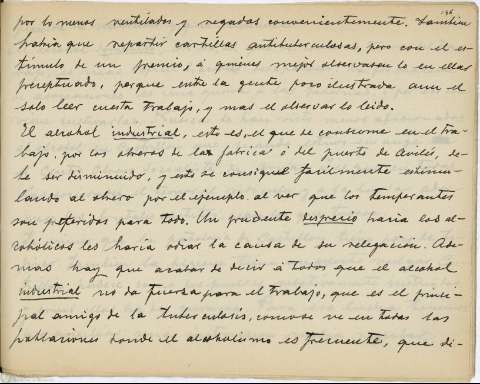 por lo menos ventilados y regados convenientemente. Tambien
habria que repartir cartillas antituberculosas, pero con el es-
tímulo de un premio, á quienes mejor observasen lo en ellas
preceptuado, porque entre la gente poco ilustrada aun el
solo leer cuesta trabajo, y mas el observar lo leido.
El alcohol industrial, esto es, el que se consume en el tra-
bajo, por los obreros de las fabrica ó del puerto de Avilés, de-
be ser disminuido, y esto se consigue facilmente estimu-
lando al obrero por el ejemplo al ver que los temperantes
son preferidos para todo. Un prudente desprecio hacia los al-
cohólicos les haría odiar la causa de su relegación. Ade-
mas hay que acabar de decir á todos que el alcohol
industrial no da fuerza para el trabajo, que es el princi-
pal amigo de la tuberculosis, como se ve en todas las
poblaciones donde el alcoholismo es frecuente, que di-